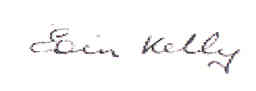 Eoin Kelly